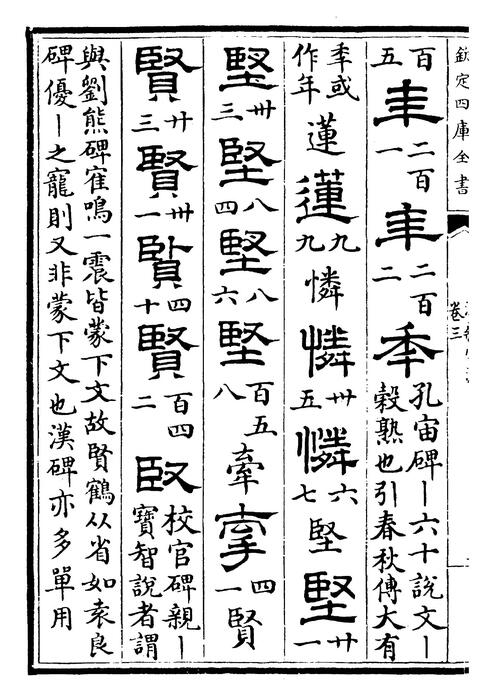 欽定四庫全書
卷三
百五年二百一年二百二秊孔宙碑丨六十說文丨穀熟也引春秋傳大有
秊或作年蓮蓮九九憐憐卅五憐六七堅堅廿一
堅卅三堅八四堅八六堅百五八牽牽四一賢
賢廿三賢卅一賢四十賢百四二臤校官碑親丨寶智說者謂
與劉熊碑寉鳴一震皆蒙下文故賢鶴从省如袁良
碑優丨之寵則又非蒙下文也漢碑亦多單用